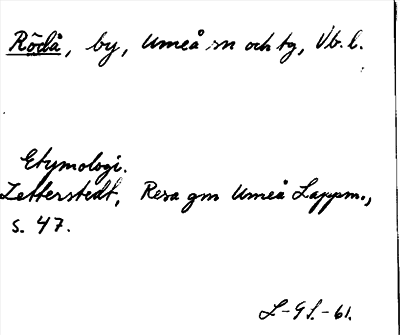 Rödå, by, Umeå sn och tg, Vb. l.
Etymologi.
Zetterstedt, Resa gm Umeå Lappm.,
s. 47.
L-G f.-61.